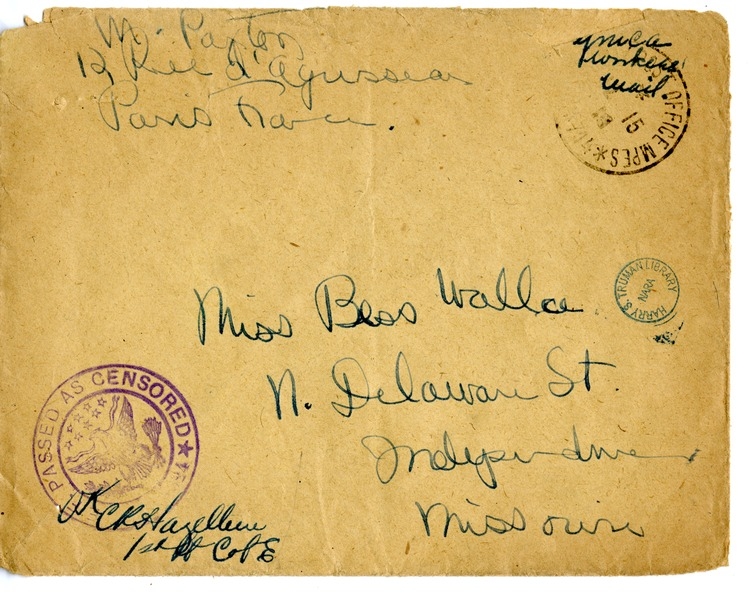 M. Paxton
12 Rue d'Aguesseau
Paris France.
YMCA
Workers
mail
OFFICE MPES
15
HARRY S. TRUMAN LIBRARY
NARA
Miss Bess Wallace
N. Delaware St.
Independence
Missouri
PASSED AS CENSORED
OK
1st Lt Co E